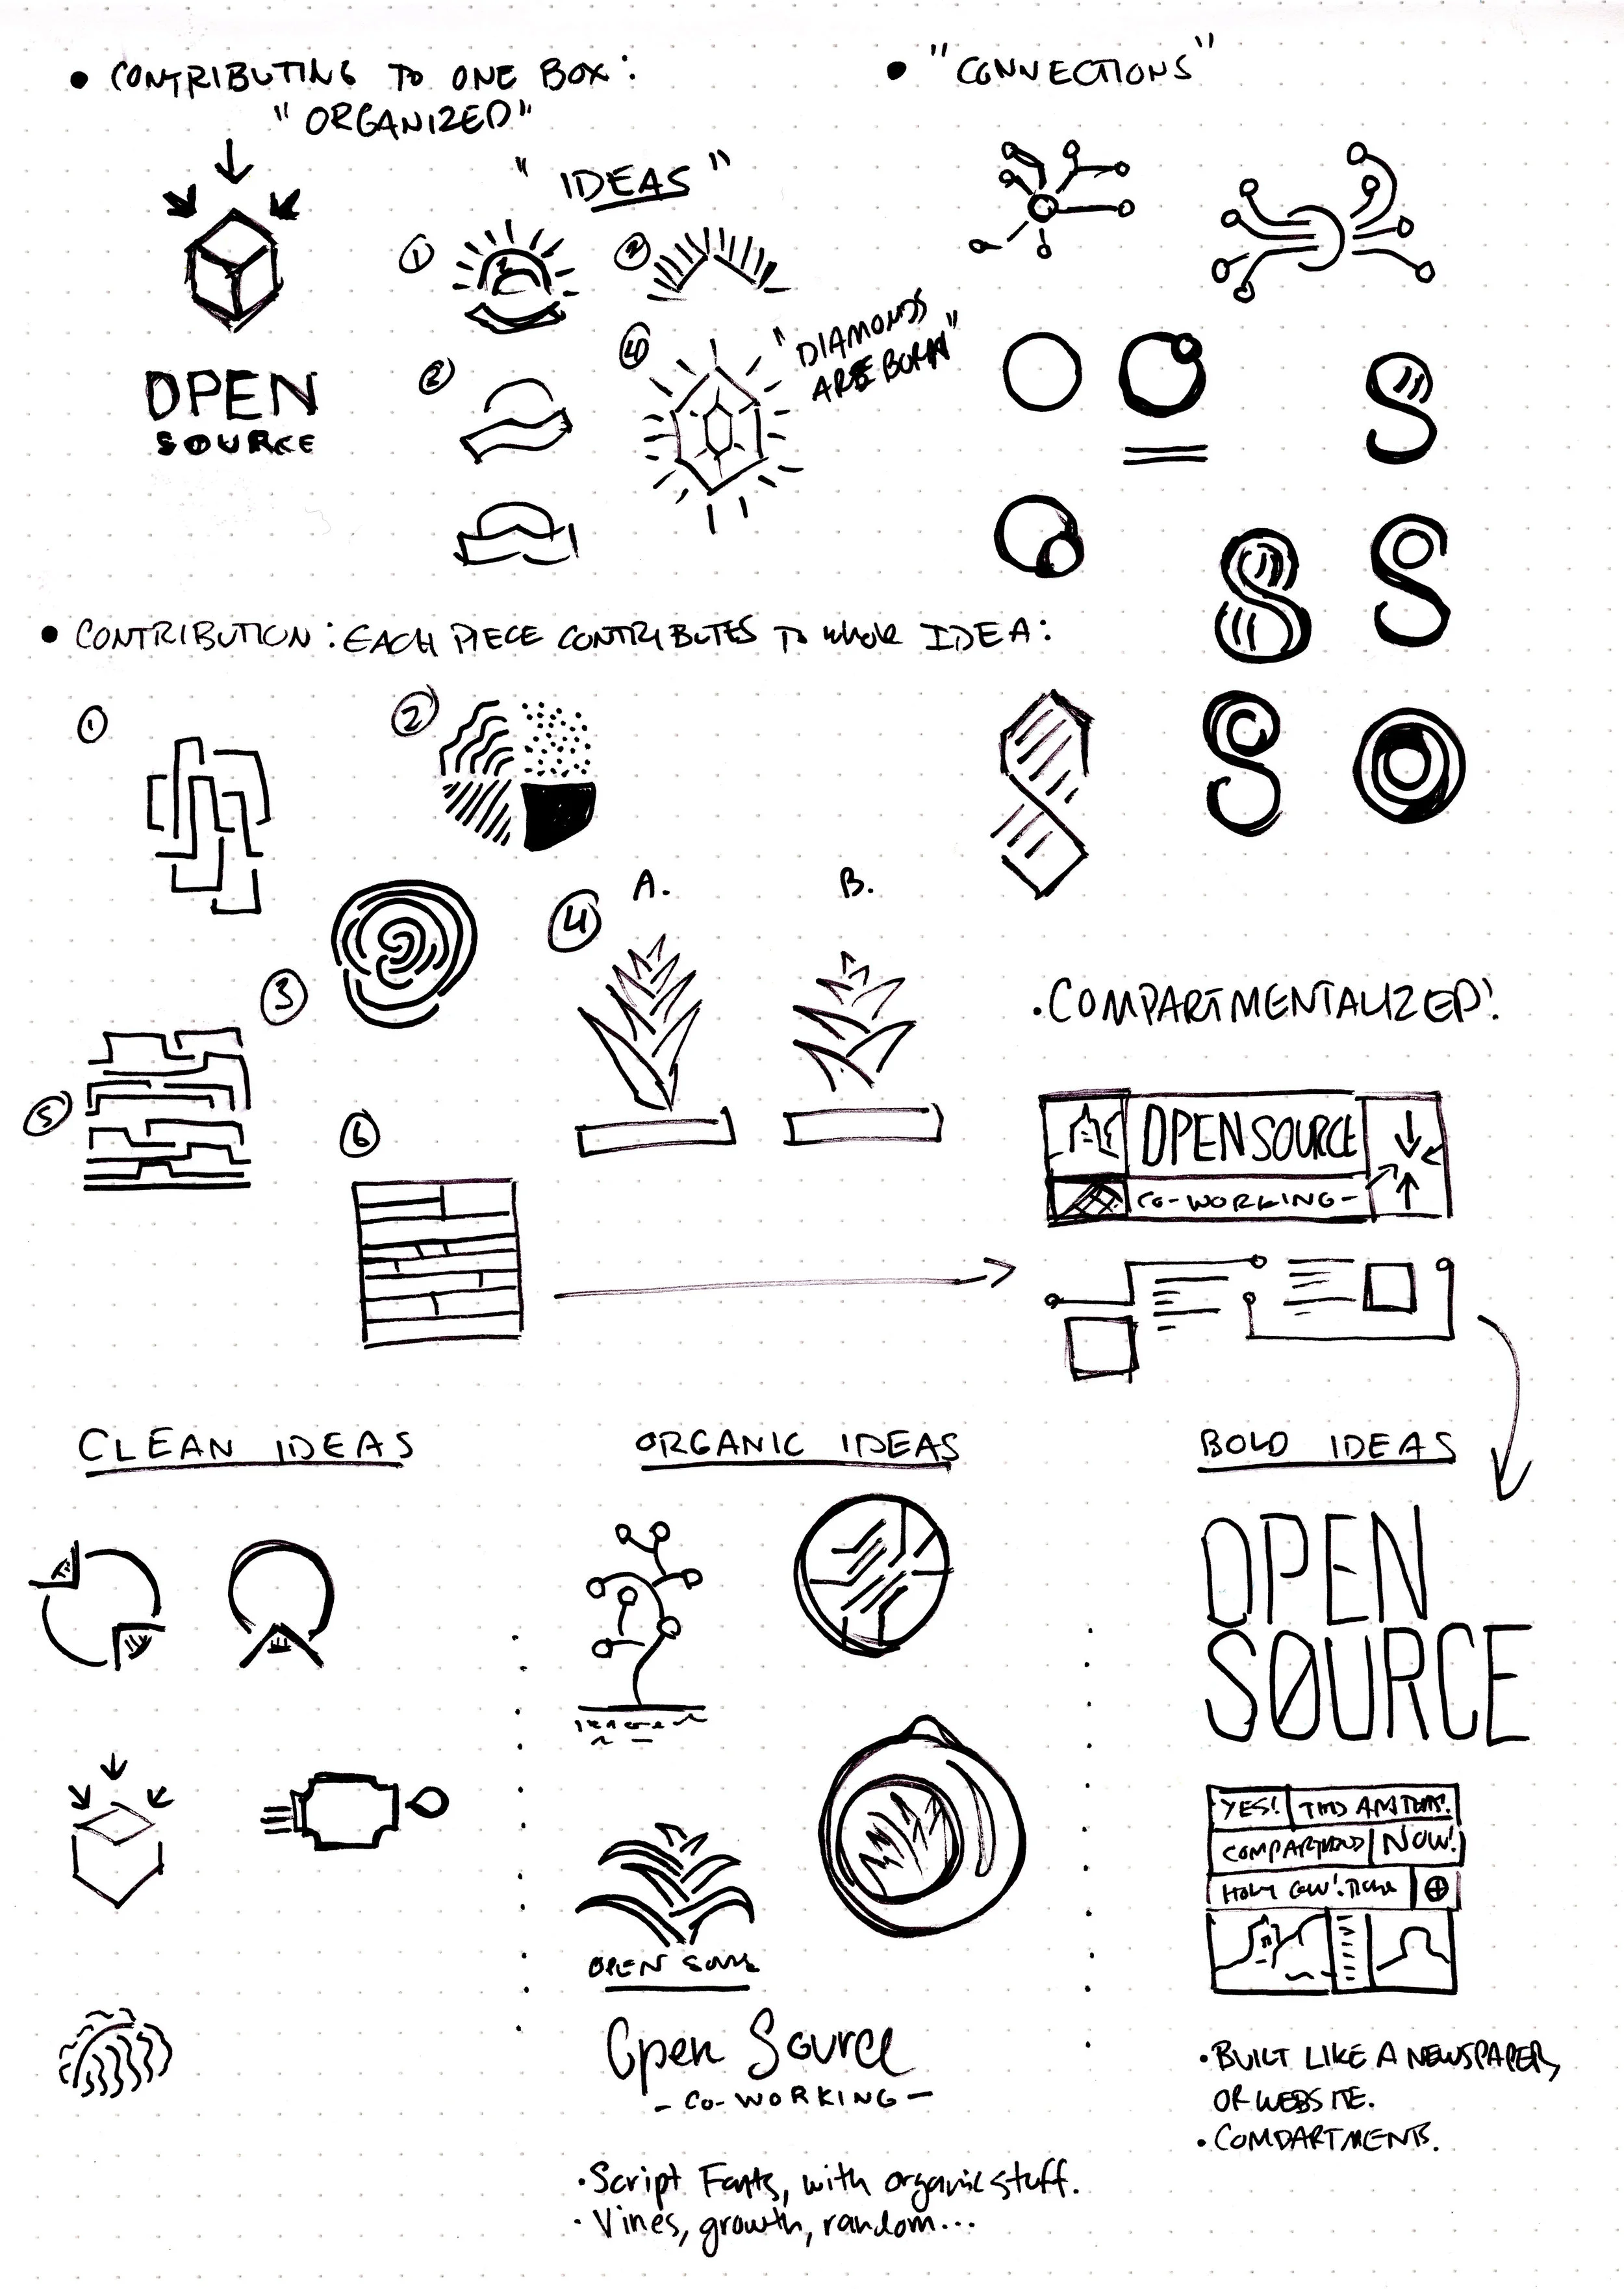 • CONTRIBUTING TO ONE BOX:
"ORGANIZED"
OPEN
SOURCE
"IDEAS"
1
3
2
4
"DIAMONDS
ARE BORN"
• "CONNECTIONS"
• CONTRIBUTION: EACH PIECE CONTRIBUTES TO whole IDEA:
1
2
3
4
A.
B.
5
6
• COMPARTMENTALIZED!
OPEN SOURCE
CO-WORKING-
CLEAN IDEAS
ORGANIC IDEAS
OPEN
Open Source
- CO-WORKING -
• Script Fonts, with organic stuff.
• Vines, growth, random...
BOLD IDEAS
OPEN
SØURCE
YES!
NOW!
HOLY COW!
• BUILT LIKE A NEWSPAPER,
OR WEBSITE.
• COMPARTMENTS.